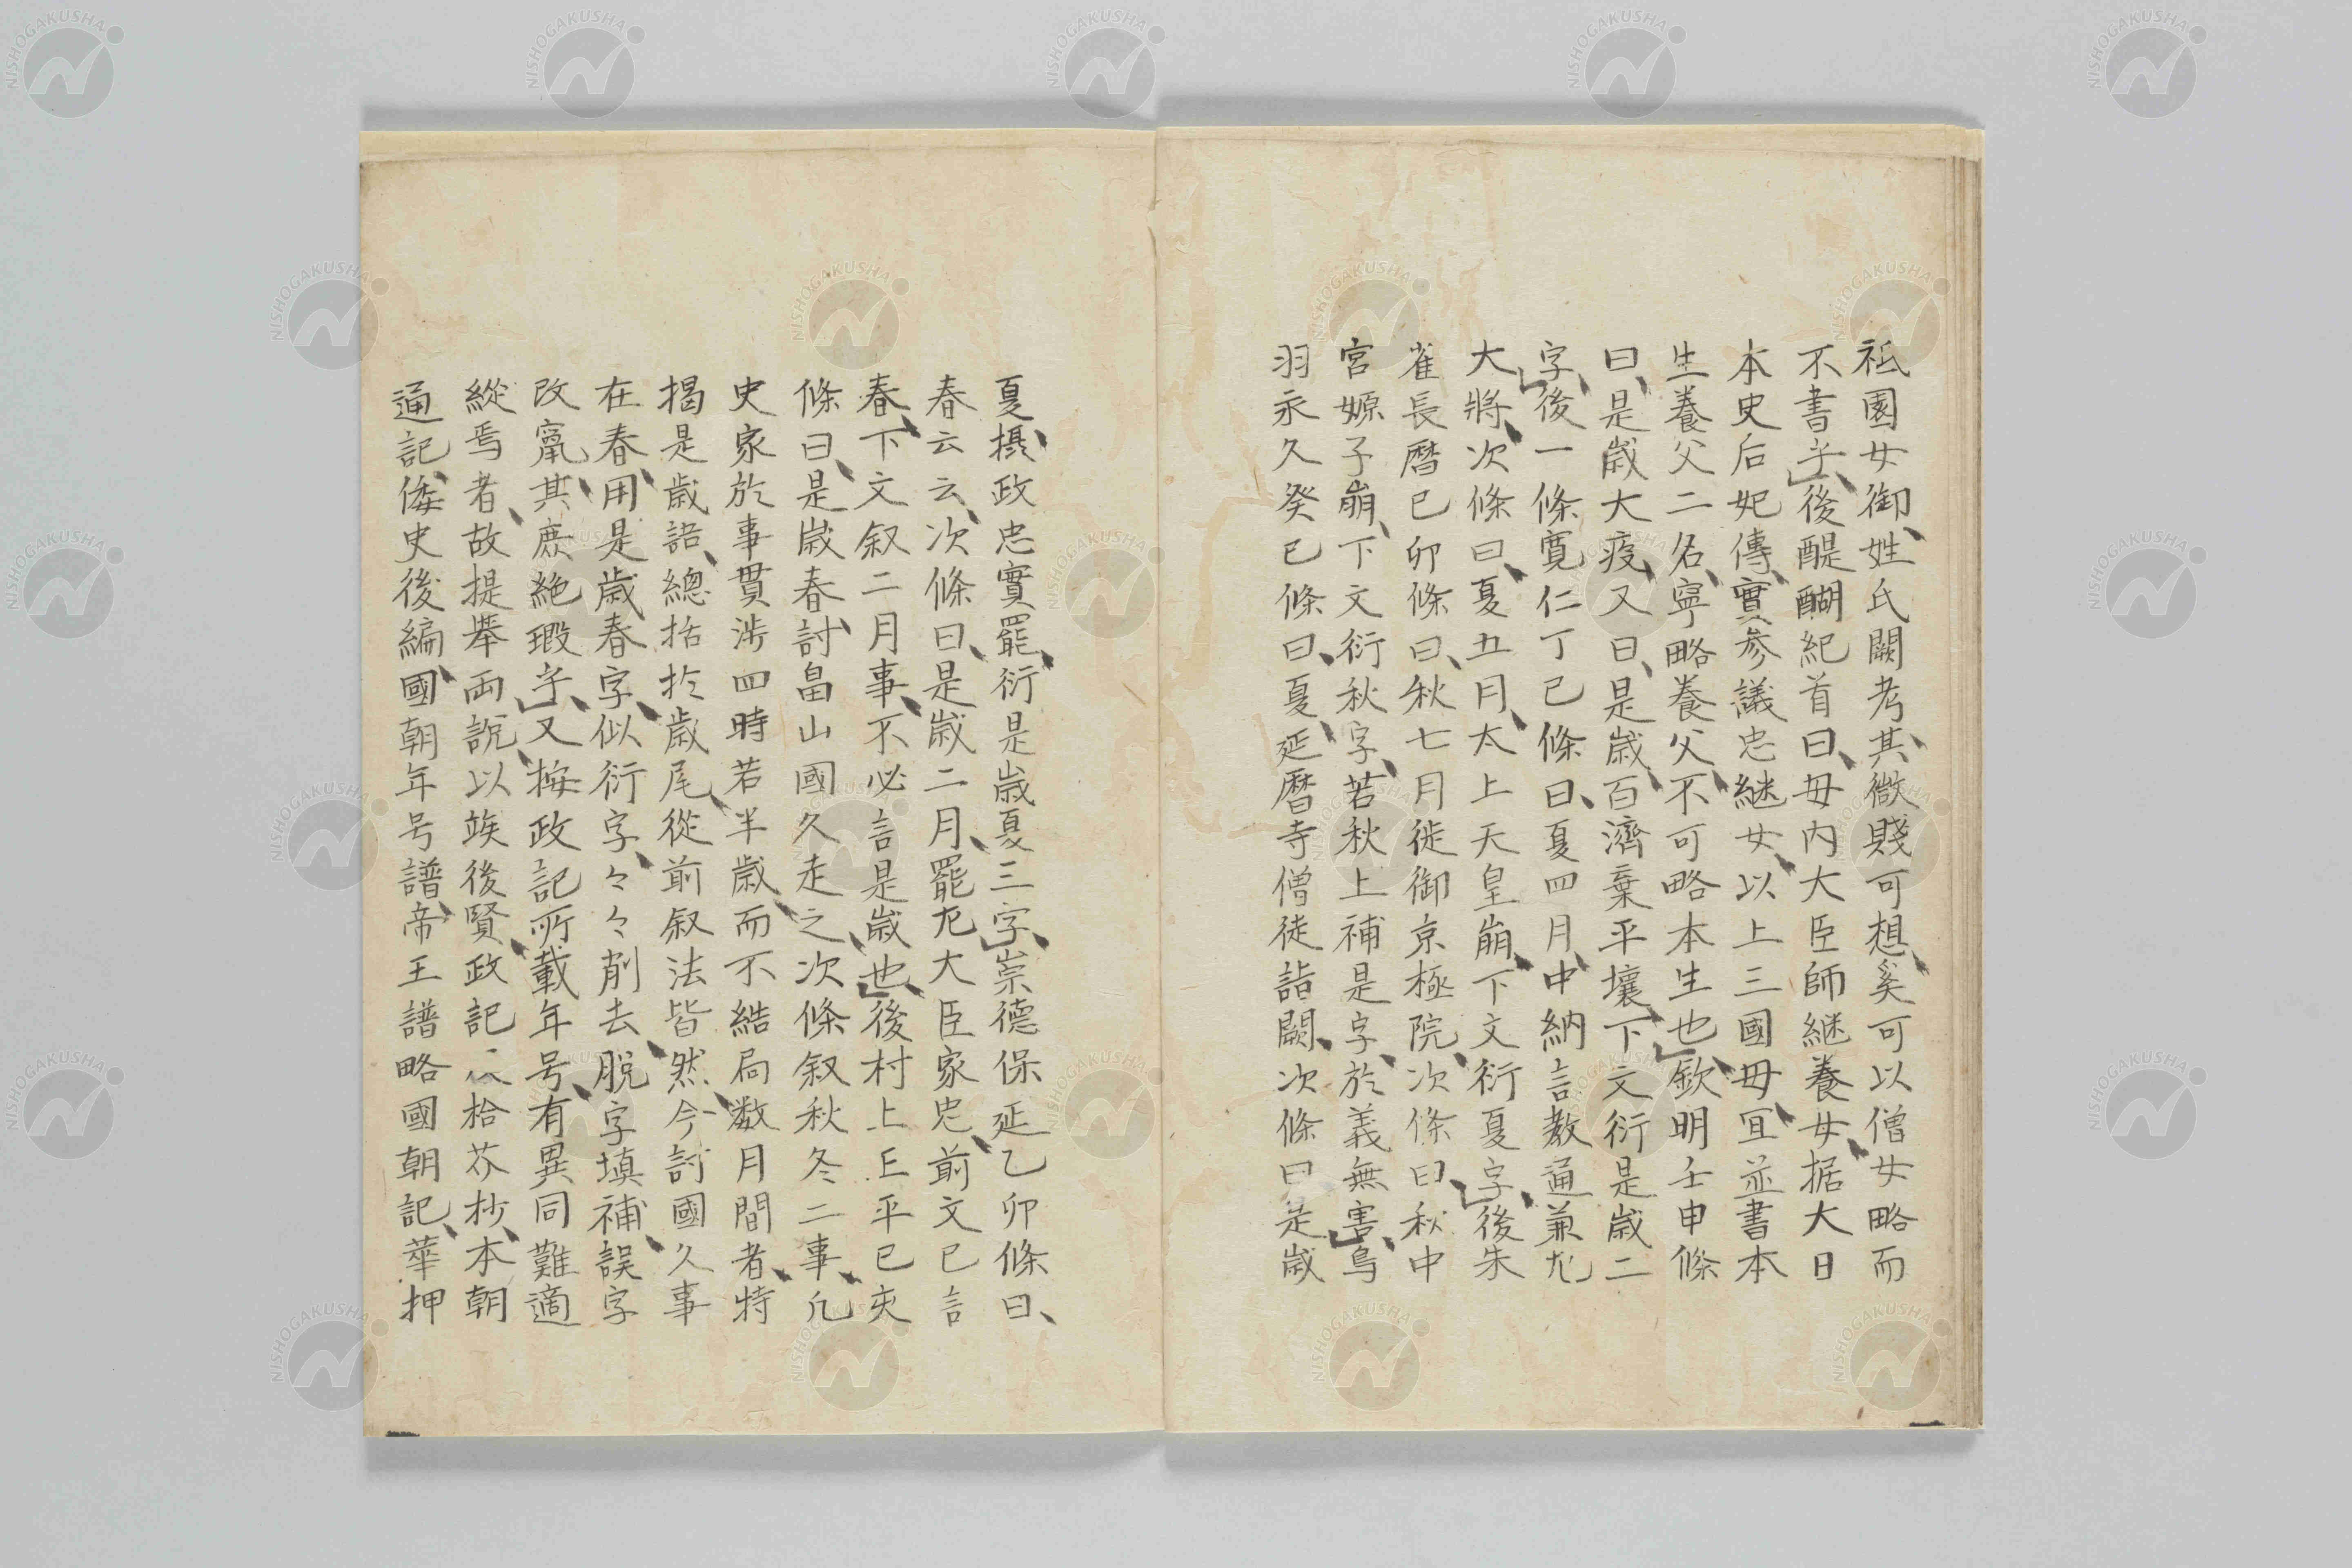 祗園女御、姓氏闕考、其微賤可想、奚可以僧女略而
不書乎、」後醍醐紀首曰、母内大臣師継養女、据大日
本史后妃傳、實參議忠継女、以上三國母、宜並書本
生養父二名、寧略養父、不可略本生也、」欽明壬申條
曰、是歳大疫、又曰、是歳、百濟棄平壤、下文衍是歳二
字、」後一條寛仁丁巳條曰、夏四月、中納言教通兼左
大將、次條曰、夏五月、太上天皇崩、下文衍夏字、」後朱
雀長暦己卯條曰、秋七月徙御京極院、次條曰秋中
宮嫄子崩、下文衍秋字、若秋上補是字、於義無害、」鳥
羽永久癸巳條曰、夏、延暦寺僧徒詣闕、次條曰是歳
夏、摂政忠實罷、衍是歳夏三字、」崇德保延乙卯條曰、
春云云、次條曰、是歳二月、罷左大臣家忠、前文已言
春、下文叙二月事、不必言是歳也、」後村上正平己亥
條曰、是歳春、討畠山國久走之、次條叙秋冬二事、凡
史家於事貫渉四時若半歳、而不結局数月間者、特
揭是歳語、總括於歳尾、從前叙法皆然、今討國久事
在春、用是歳春字、似衍字、々々削去、脱字填補、誤字
改竄、其庶絶瑕乎、」又按政記所載年号、有異同難適
縱焉者、故提擧両説、以竢後賢、政記 拾芥抄、本朝
通記、倭史後編、國朝年号譜、帝王譜略國朝記、華押